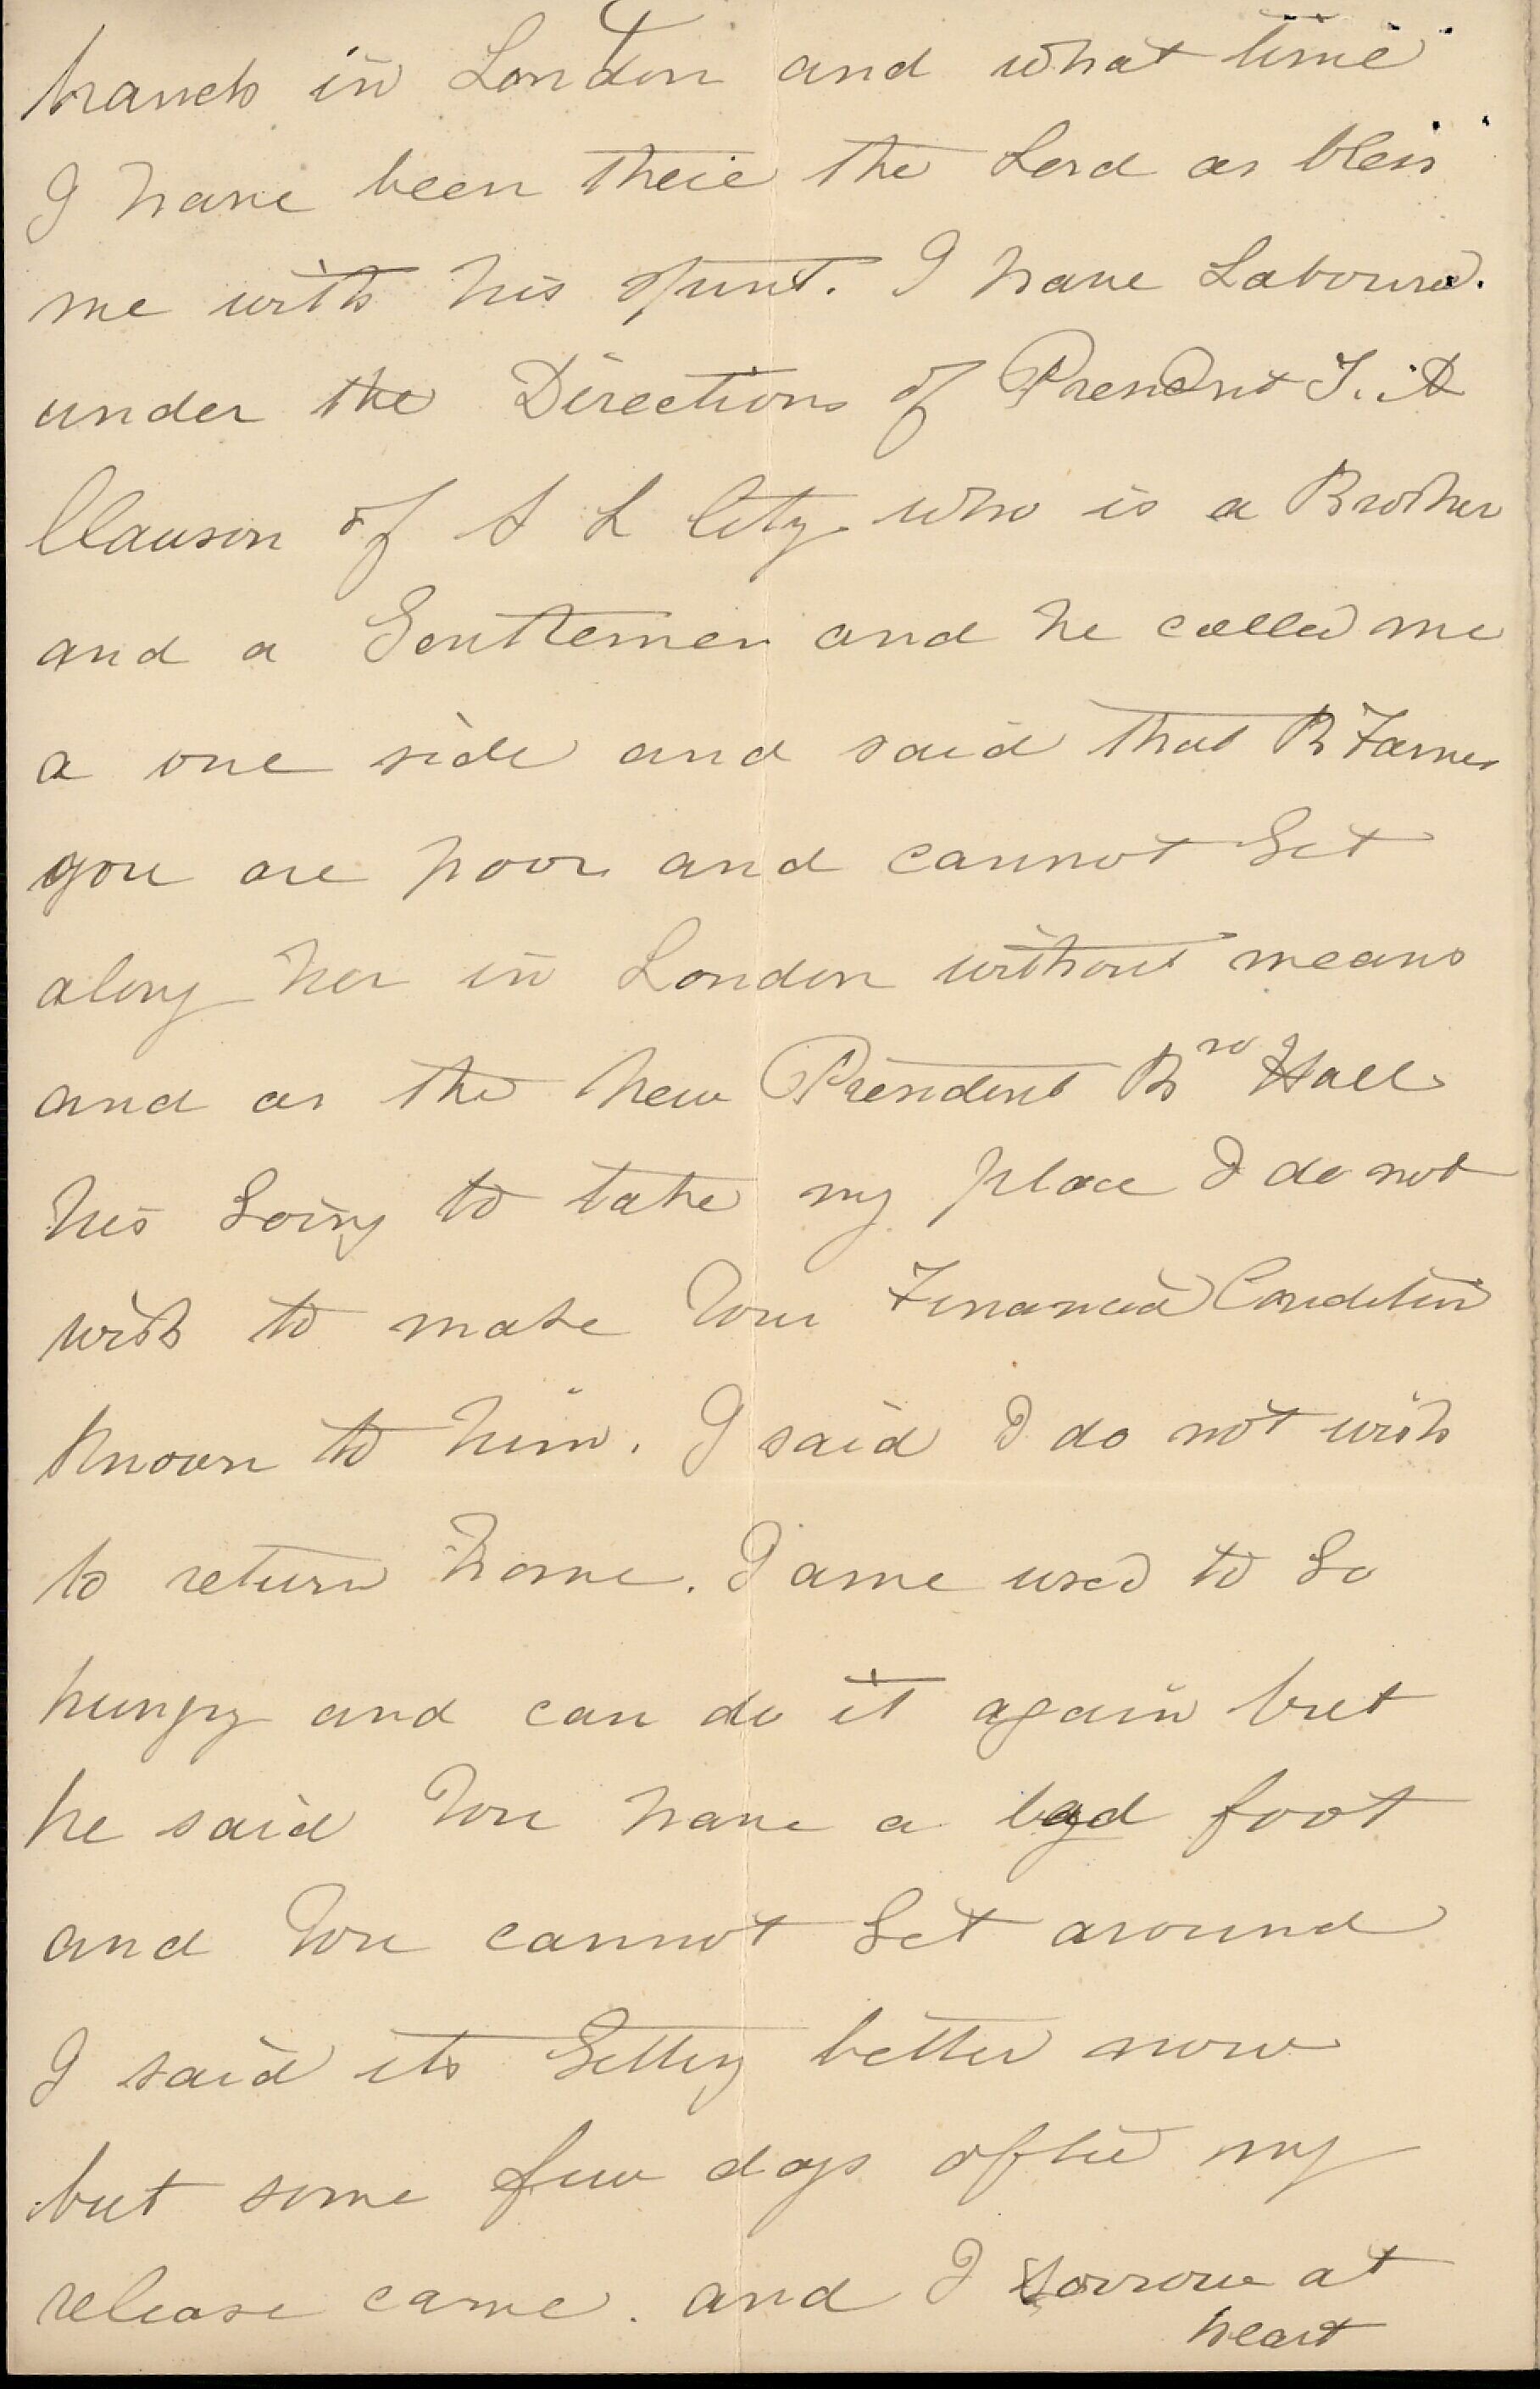 branch in London and what time
I have been their the Lord as bless
me with his spirit. I have Laboured.
under the Directions of President I. A
Clauson of S L City who is a Brother
and a Gentlemen and he called me
a one side and said that B James
you are poor and cannot Get
along her in London without means
and as the New President Bro Hall
his Going to take my place I do not
wish to make Your Financial Condition
known to him. I said I do not wish
to return home. I ame used to Go
hungry and can do it again but
he said You have a bad foot
and You cannot Get around
I said its Getting better now
but some few days after my
release came. and I sorrow at
heart